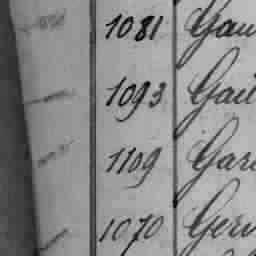 1081 Gau
1093 Gail
1109 Gar
1070 Gerv